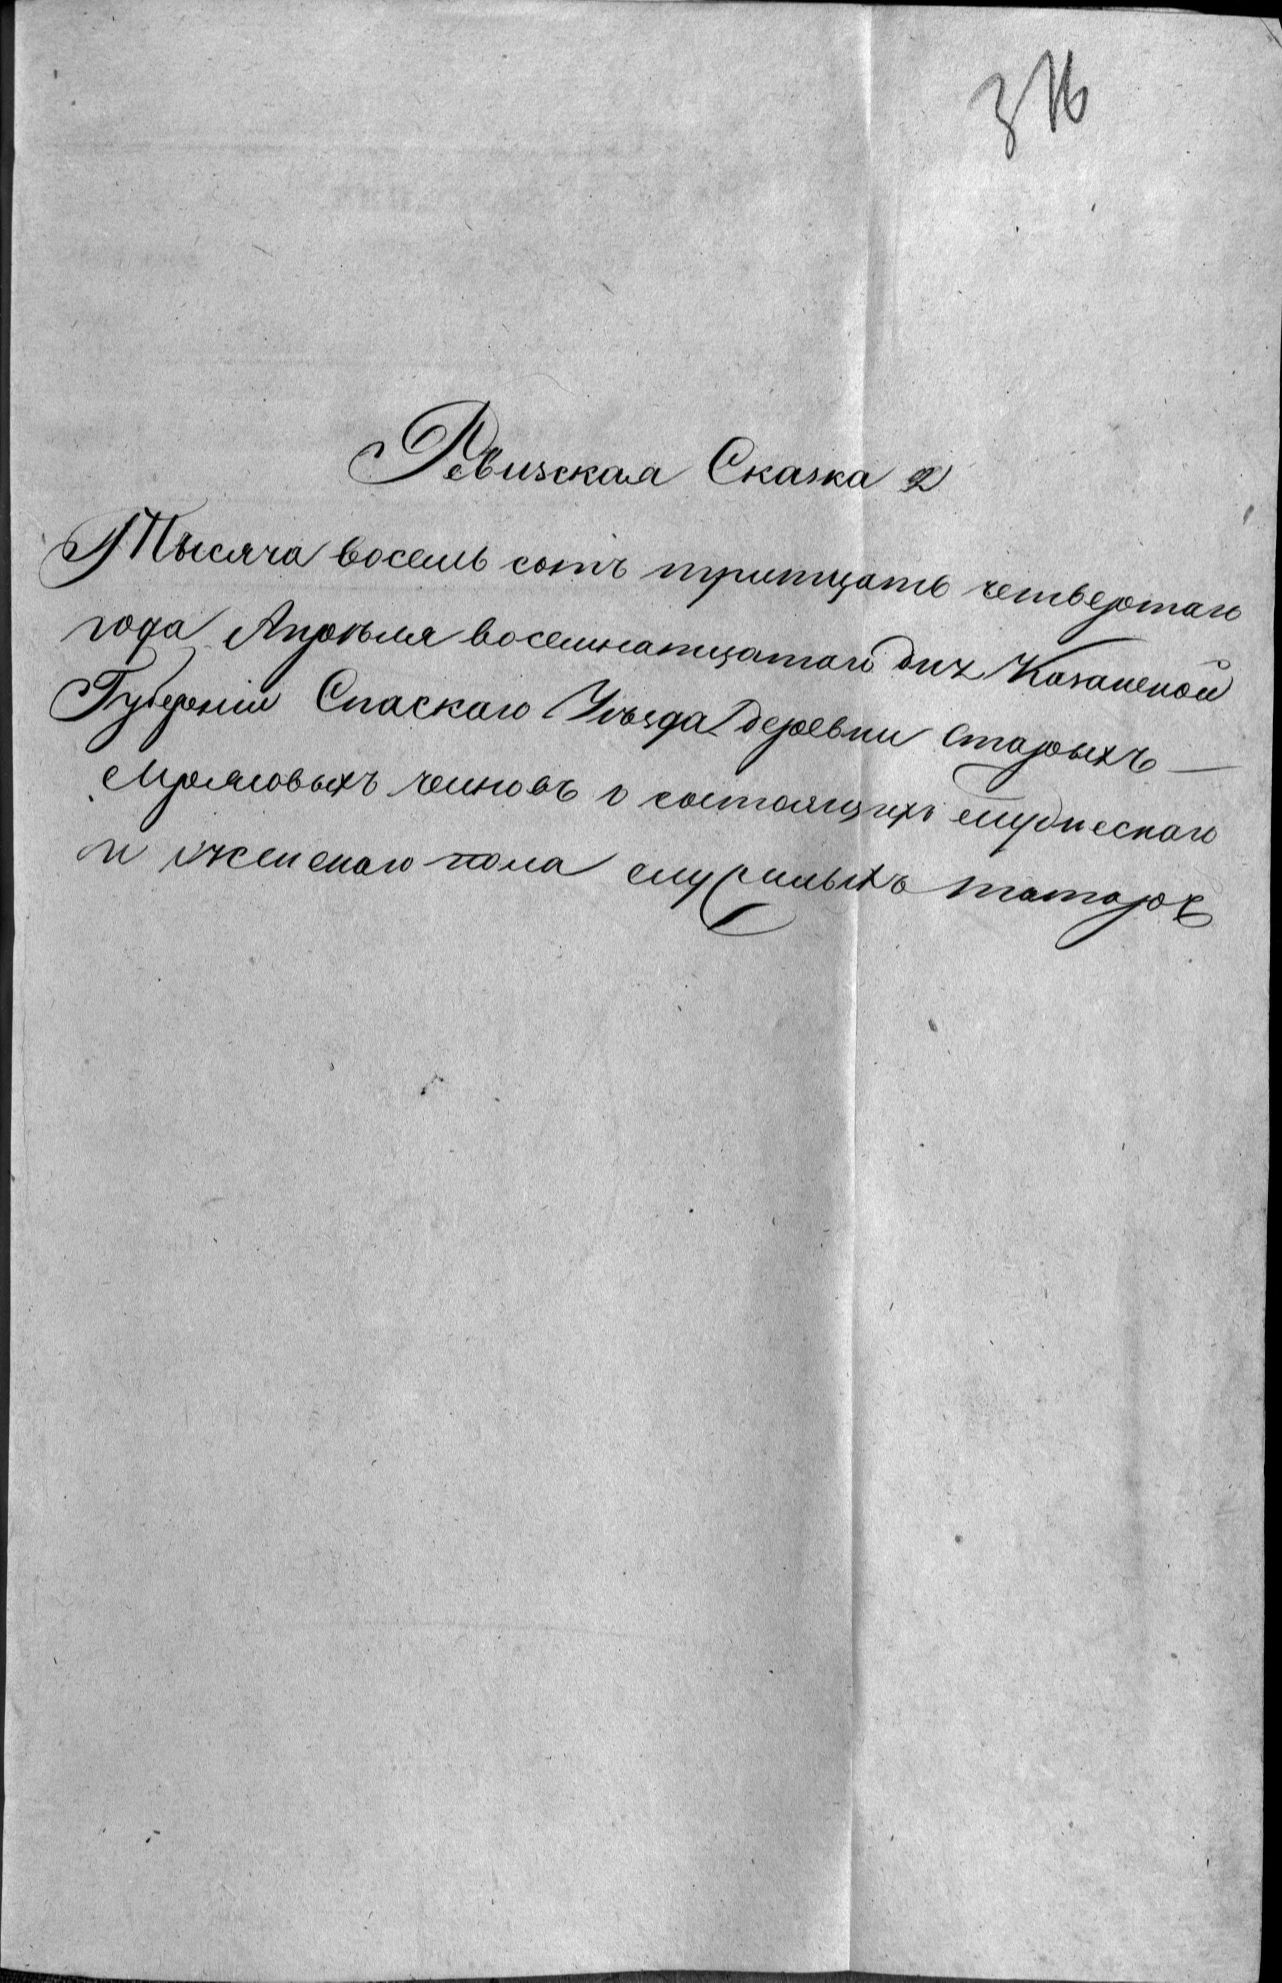 316
Ревизская Сказка
Тысяча восемь сотъ тритцать четвертаго
года Апреля восемнатцатаго дня Казанской
Губерніи Спаскаго Уѣзда деревни Старыхъ —
о состоящихъ мужескаго
и женскаго пола служилыхъ татаръ